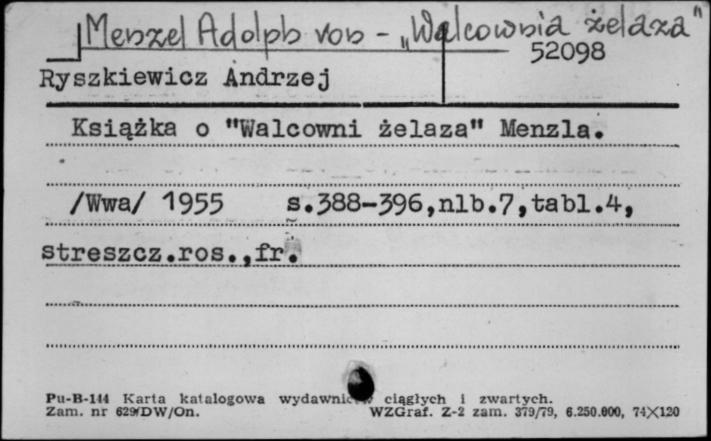 Menzel Adolph von - „Walcownia żelaza"
52098
Ryszkiewicz Andrzej
Książka o "Walcowni żelaza" Menzla.
/Wwa/ 1955 s.388-396,nlb.7,tabl.4,
streszcz.ros.,fr.
Pu-B-144 Karta katalogowa wydawnictw ciągłych i zwartych.
Zam. nr 629/DW/On. WZGraf. Z-2 zam. 379/79, 6.250.000, 74×120